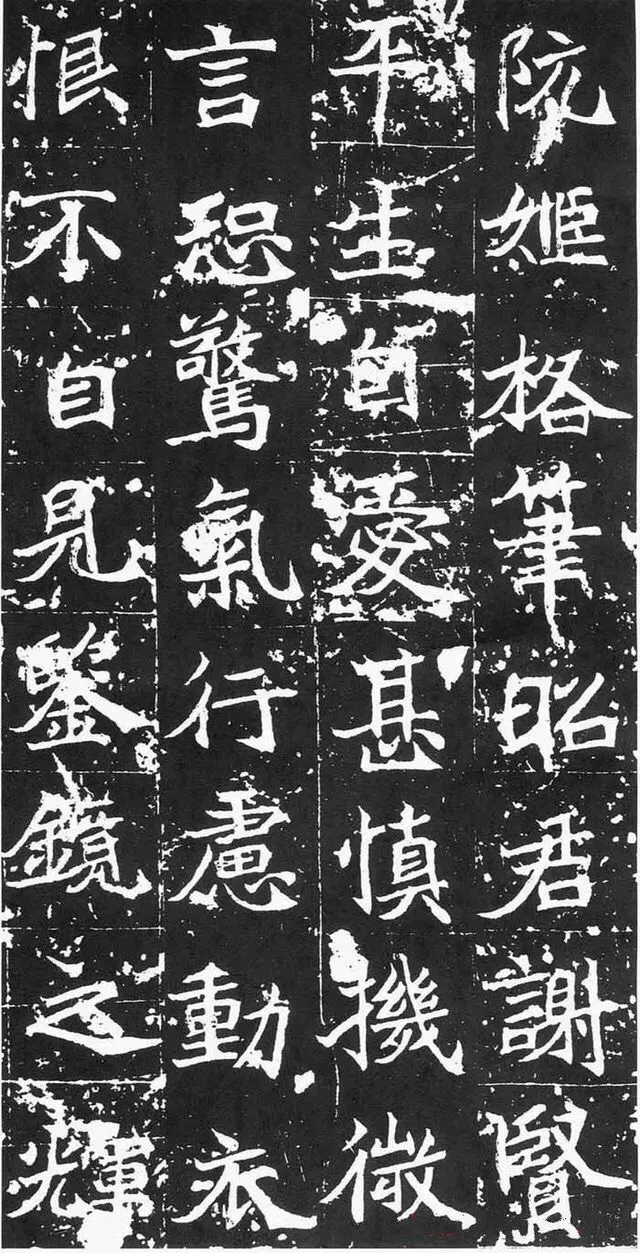 姬格筆昭君謝賢
平生自愛甚慎機微
言恐驚氣行慮動衣
恨不自見鑒鏡之輝